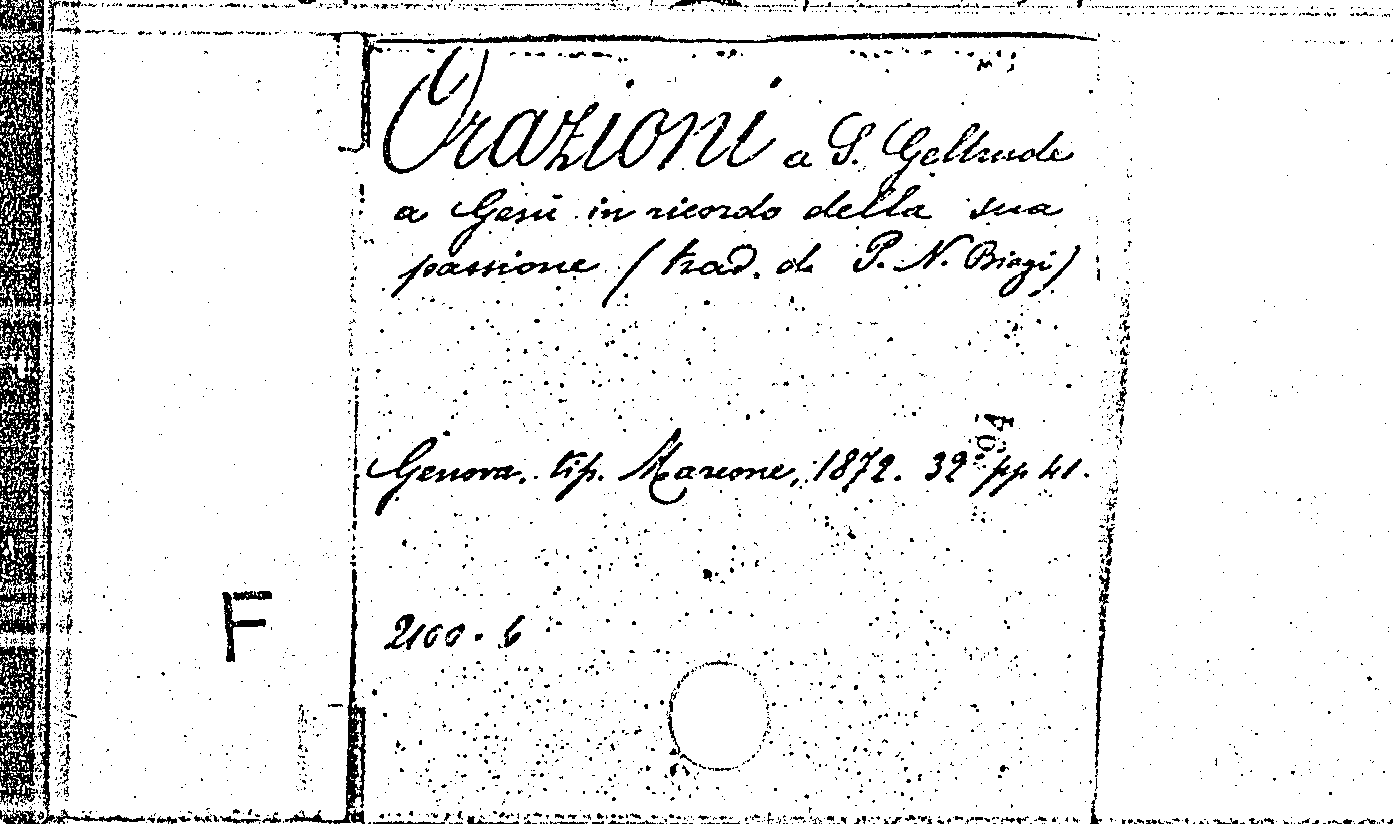 Orazioni a S. Geltrude
a Gesù in ricordo della sua
passione (trad. da P. N. Biagi)
Genova, tip. 1872. 32° pp 41.
F
2100. 6